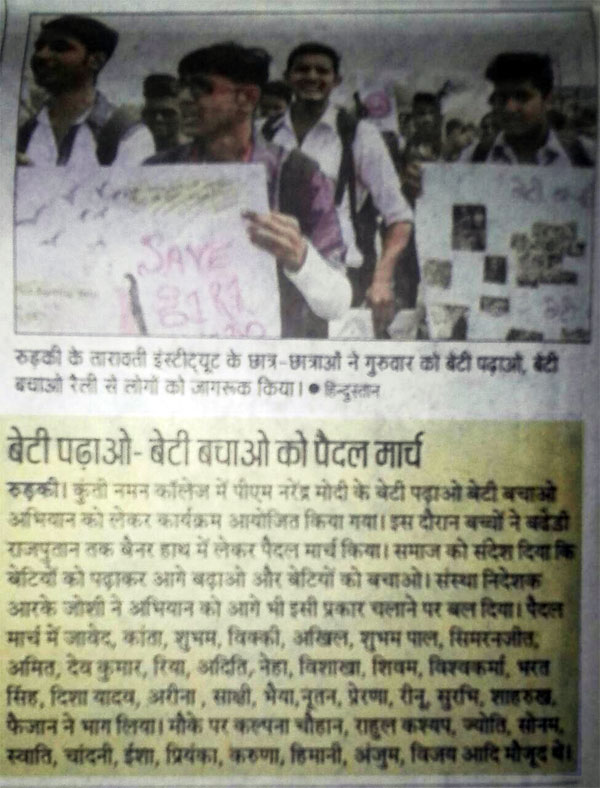 SAVE
GIRL
रुड़की के तारावती इंस्टीट्यूट के छात्र-छात्राओं ने गुरुवार को बेटी पढ़ाओ, बेटी
बचाओ रैली से लोगों को जागरूक किया। ● हिन्दुस्तान
बेटी पढ़ाओ- बेटी बचाओ को पैदल मार्च
रुड़की। कुंती नमन कॉलेज में पीएम नरेंद्र मोदी के बेटी पढ़ाओ बेटी बचाओ
अभियान को लेकर कार्यक्रम आयोजित किया गया। इस दौरान बच्चों ने बढेडी
राजपूतान तक बैनर हाथ में लेकर पैदल मार्च किया। समाज को संदेश दिया कि
बेटियों को पढ़ाकर आगे बढ़ाओ और बेटियों को बचाओ। संस्था निदेशक
आरके जोशी ने अभियान को आगे भी इसी प्रकार चलाने पर बल दिया। पैदल
मार्च में जावेद, कांता, शुभम, विक्की, अखिल, शुभम पाल, सिमरनजीत,
अमित, देव कुमार, रिया, अदिति, नेहा, विशाखा, शिवम, विश्वकर्मा, भरत
सिंह, दिशा यादव, अरीना , साक्षी, भैया, नूतन, प्रेरणा, रीनू, सुरभि, शाहरुख,
फैजान ने भाग लिया। मौके पर कल्पना चौहान, राहुल कश्यप, ज्योति, सोनम,
स्वाति, चांदनी, ईशा, प्रियंका, करुणा, हिमानी, अंजुम, विजय आदि मौजूद थे।